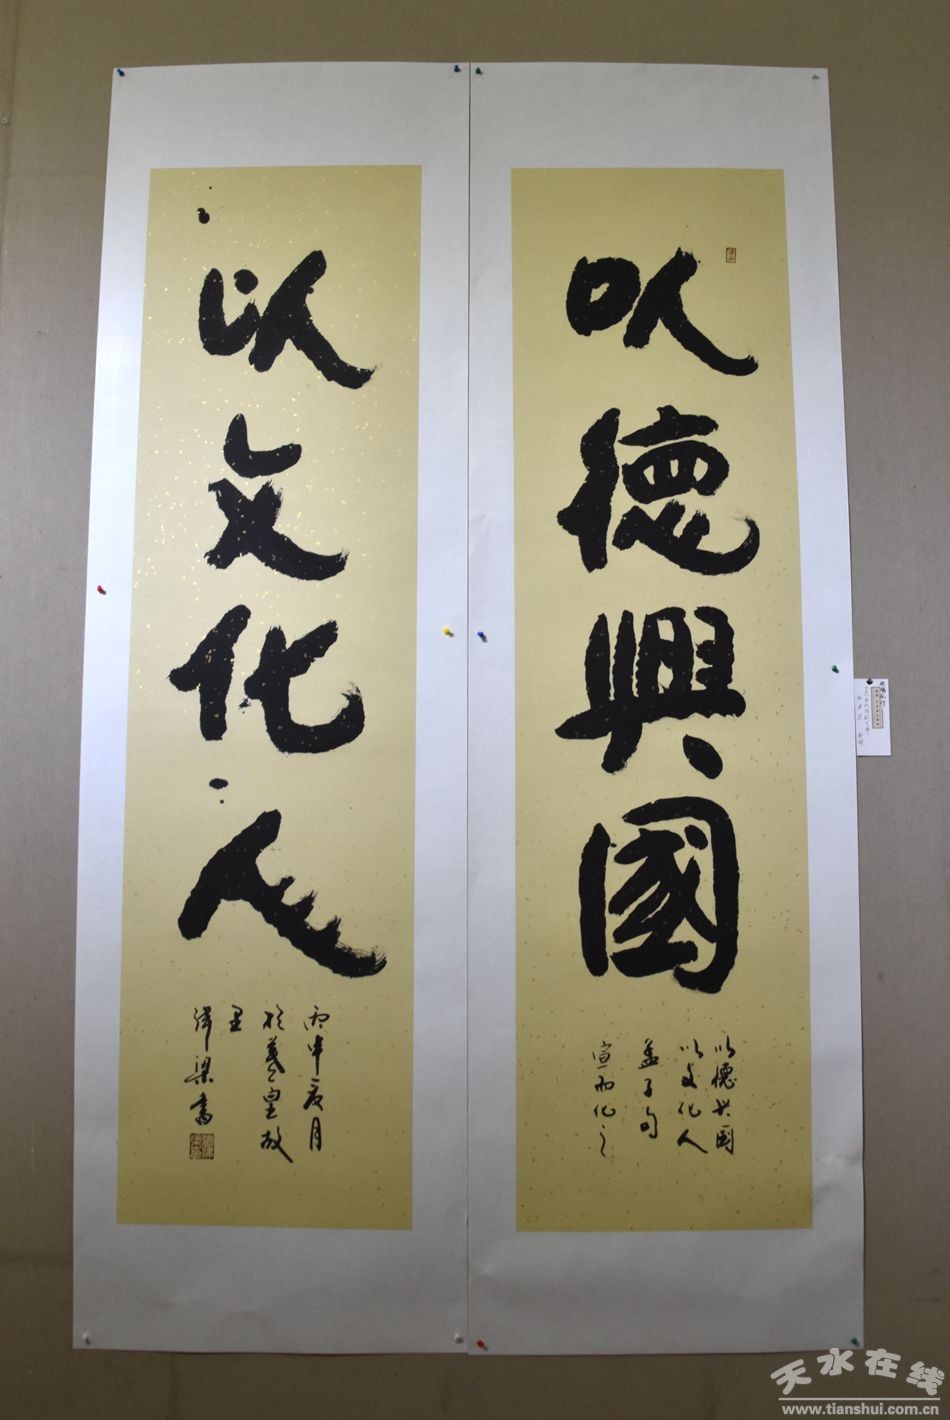 以德興國
以德興國
以文化人
孟子句
宣而化之
以文化人
丙申夏月
於羲皇故
里
津梁書
天水在线
www.tianshui.com.cn